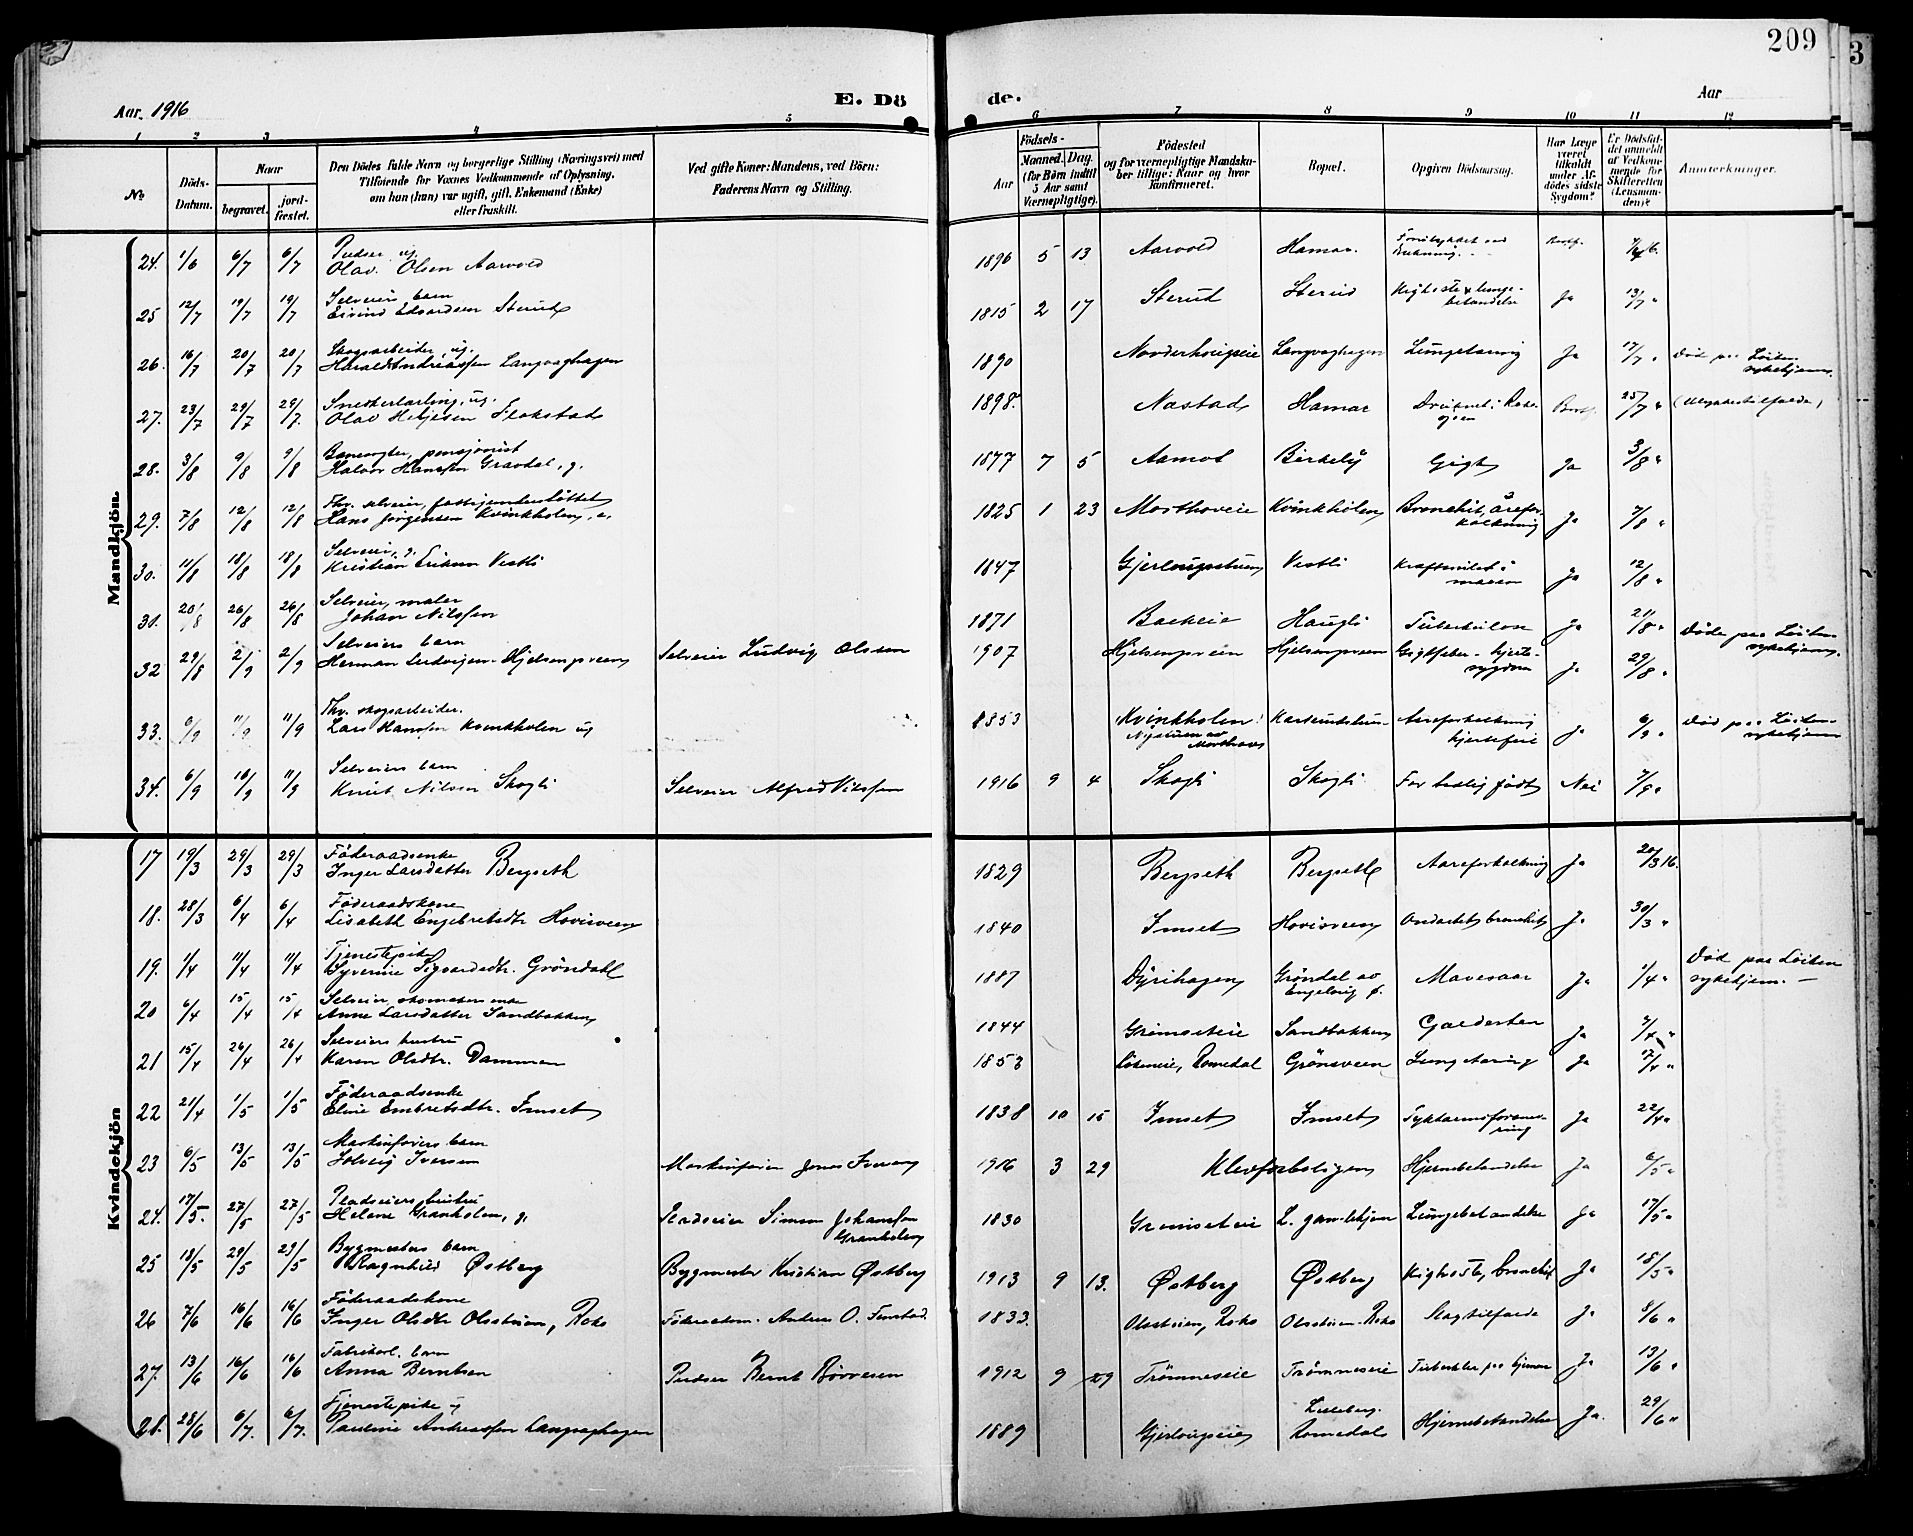 209
3
Aar. 1916
E. Dö
de.
Aar
1 2 3 4 5 6 7 8 9 10 11 12
No.
Döds-Datum.
Naar
begravet.
jord-fæstet.
Den Dödes fulde Navn og borgerlige Stilling (Næringsvei) med
Tilföiende for Voxnes Vedkommende af Oplysning,
om han (hun) var ugift, gift, Enkemand (Enke)
eller fraskilt.
Ved gifte Koner: Mandens, ved Börn:
Faderens Navn og Stilling.
Födsels-
Aar
Maaned. Dag.
(for Börn indtil
5 Aar samt
Værnepligtige).
Födested
og for værnepligtige Mandska-
ber tillige: Naar og hvor
konfirmeret.
Bopæl.
Opgiven Dödsaarsag.
Har Læge
været
tilkaldt
under Af-
dödes sidste
Sygdom?
Er Dödsfal-
det anmeldt
af Vedkom-
mende for
Skifteretten
(Lensman-
den)?
Anmerkninger.
Mandkjön
24. 1/6 6/7 6/7 Pudser ug. Olav Olsen Aarvold 1896 5 13 Aarvold Hamar
25 12/7 19/7 19/7 Selveiers barn Eivind Edvardsen Sterud 1815 2 17 Sterud Sterud Kighoste & lungebetændelse Ja 13/7 "
26. 16/7 20/7 20/7 Skogsarbeider, ug. Harald Andreassen Langvaghagen 1890 Norderhougseie Langvaghagen Lungetæring Ja 17/7 " Død paa Løiten sykehjem.
27. 23/7 29/7 29/7. Snekkerlærling, ug. Olav Flakstad 1898. Nastad Hamar 25/7 " (Ulykkestilfælde)
28. 3/8 9/8 9/8 Banevogter, pensjonist Halvor Hanssen Gravdal, g. 1877 7 5 Aamot Birkely Gigt Ja 3/8 "
29. 7/8 12/8 12/8 Fhv. selveier, fattigunderstøttet Hans Jørgensen Kvinkholen, e. 1825 1 23 Morthoveie Kvinkholen Bronchit, åreforkalkning Ja 7/8 "
30. 11/8 18/8 18/8 Selveier, g. Kristian Eriksen Vestli 1847 Gjerlougsstuen Vestli Kræftsvulst i maven Ja 12/8 "
31. 20/8 26/8 26/8 Selveier, maler Johan Nilssen 1871 Bakkeie Haugli Tuberkulose Ja 21/8 "
32 29/8 2/9 2/9 Selveiers barn Herman Ludvigsen Hjelsengsveen Selveier Ludvig Olssen 1907 Hjelsengsveien Hjelsengsveen Gigtfeber - hjertesygdom Ja 29/8 " Døde paa Løiten sykehjem.
33. 6/9 11/9 11/9 Fhv. skogsarbeider. Lars Hanssen Kvinkholen ug 1853 Kvinkholen Aareforkalkning hjertefeil Ja 6/9 " Død paa Løiten sykehjem
34. 6/9 10/9 11/9 Selveiers barn Knut Nilsen Skogli Selveier Alfred Nilssen 1916 9 4 Skogli Skogli For tidlig født Nei 7/9 "
Kvindekjön
17 19/3 29/3 29/3 Føderaadsenke Inger Larsdatter Bergseth 1829 Bergseth Bergseth Aareforkalkning Ja 20/3 16.
18. 28/3 6/4 6/4 Føderaadskone Lisabeth Engebretsdtr Hovisveen 1840 Imset Hovisveen Ondartet bronchit Ja 30/3 "
19. 1/4 11/4 11/4 Tjenestepike Syverine Sigvardsdtr. Grøndahl 1887 Dyrihagen Grøndal av Engelvig ø. Mavesaar Ja 1/4 " Død paa Løiten sykehjem. —
20 6/4 15/4 15/4 Selveier, skomakers enke Anne Larsdatter Sandbakken 1844 Grimseteie Sandbakken Galdesten Ja
21 15/4 26/4 26/4 Selveiers hustru Karen Olsdtr. Dammen 1853 Romedal Grønsveen Lungetæring Ja 17/4 "
22 21/4 1/5 1/5 Føderaadsenke Eline Embretsdtr. Imset 1838 10 15 Imset Imset Ja 22/4 "
23 6/5 13/5 13/5 Maskinførers barn Solveig Iversen Maskinfører Jonas Iversen 1916 3 29 Klevfosboligen Hjernebetændelse Ja 6/5 "
24. 17/5. 27/5 27/5 Pladseiers hustru Helene Granholen, g. Pladseier Simen Johanssen Granholen 1830 Grimseteie L. gamlehjem Lungebetændelse Ja 17/5 "
25 18/5 29/5 29/5 Bygmesters barn Ragnhild Østberg Bygmester Kristian Østberg 1913 9 13. Østberg Østberg Kighoste, bronchit Ja 18/5 "
26 7/6 16/6 16/6 Føderaadskone Inger Olsdtr Olsstuen, Roko Føderaadsm. Andreas O. Finstad 1833. Olsstuen, Roko Olsstuen - Roko Slagtilfælde Ja 8/6 "
27. 13/6 16/6 16/6 Fabrikarb. barn Anna Berntsen Pudser Bernt Børresen 1912 9 29 Trømneseie Trømneseie Ja 13/6 "
28. 28/6 6/7. 6/7. Tjenestepike ug Pauline Andreassen Langvaghagen 1889 Gjerlougseie Lilleberg. Romedal Hjernebetændelse Ja. 29/6 "